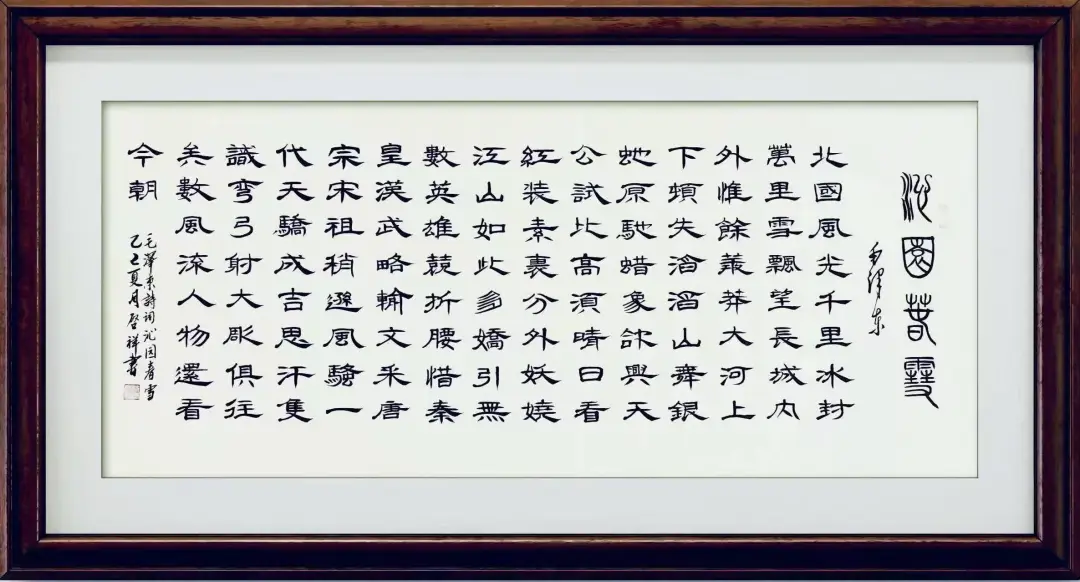 沁園春雪
毛澤東
北國風光千里冰封
萬里雪飄望長城内
外惟餘莽莽大河上
下頓失滔滔山舞銀
虵原馳蜡象欲與天
公試比高須晴日看
紅装素裹分外妖嬈
江山如此多嬌引無
數英雄競折腰惜秦
皇漢武略輸文采唐
宗宋祖稍遜風騷一
代天驕成吉思汗隻
識彎弓射大彫俱往
矣數風流人物還看
今朝
毛澤東詩詞沁园春雪
乙巳夏月啓祥書